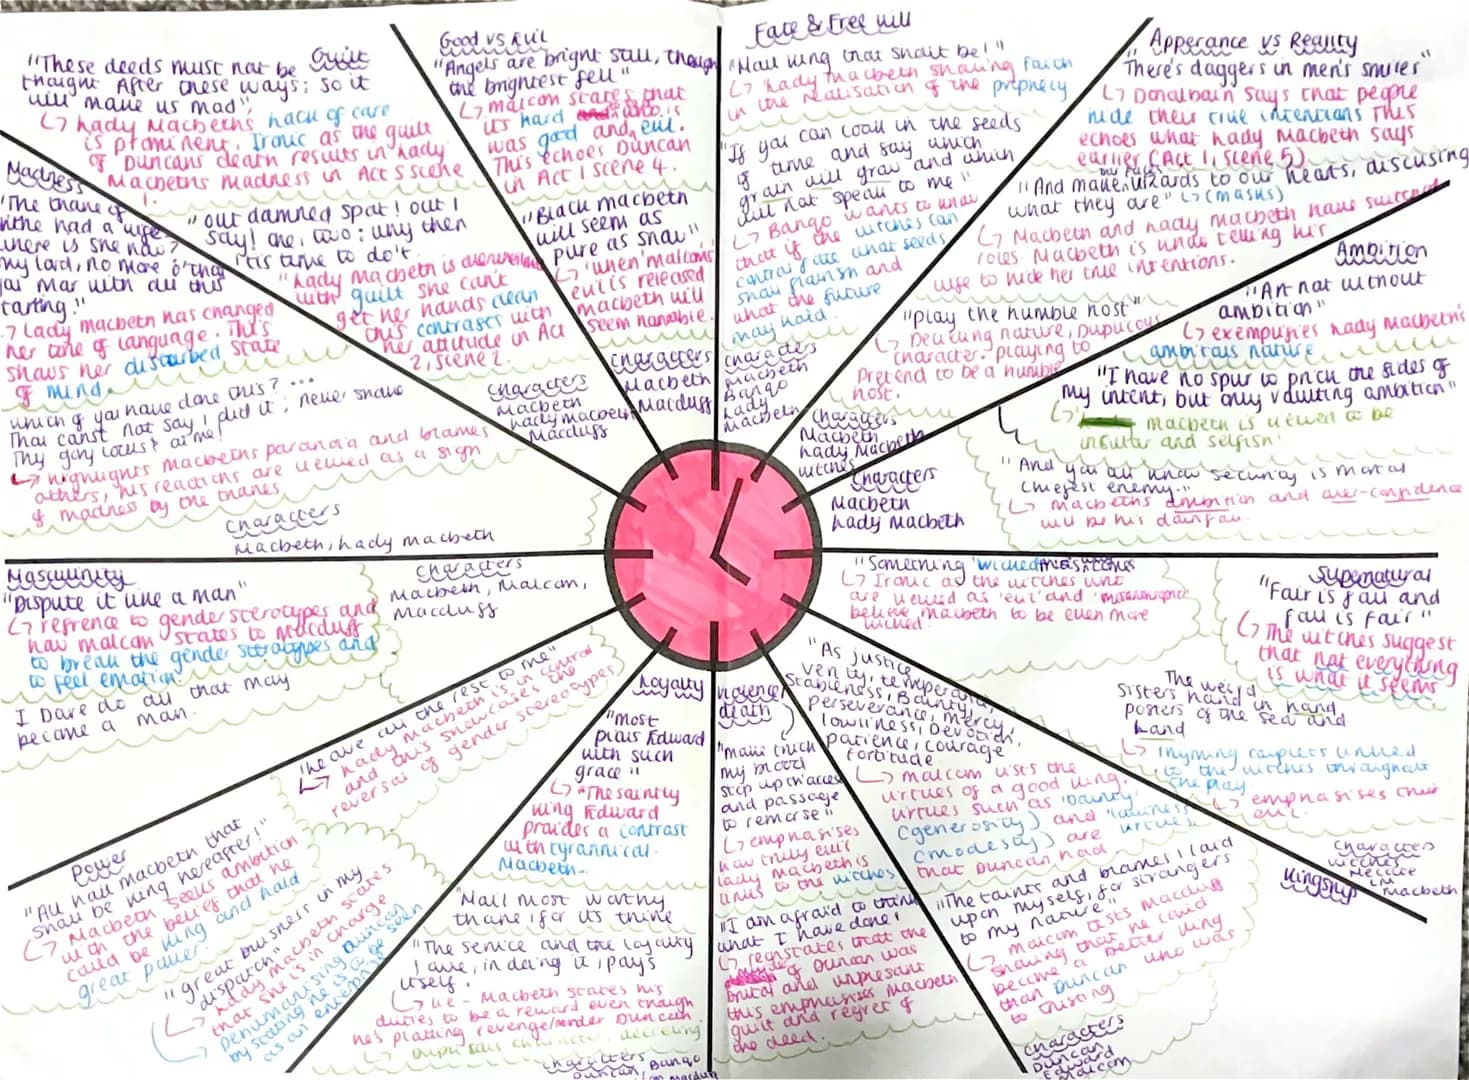 Guilt
"These deeds must not be
thought After these ways; so it
will make us mad",
↳ Lady Macbeths lack of care
is prominent. Ironic as the guilt
of Duncans death results in Lady
Macbeths Madness in Act 5 scene
1.
"out damned spot! out I
say! One, two: why then
'tis time to do't.
"Lady Macbeth is
with guilt she can't
get her hands clean
this contrasts with
her attitude in Act
2, scene 2.
Characters
Macbeth
Lady Macbeth
Macduff
Good vs Evil
"Angels are bright still, though
the brightest fell"
↳ malcom states that
its hard who is
was good and evil.
This echoes Duncan
in Act 1 scene 4.
"Black macbeth
will seem as
pure as snow"
↳ 'when malcoms
evil is released
macbeth will
seem
Characters
Macbeth
Macduff
Fate & Free will
"Hail king that shalt be!"
↳ Lady Macbeth showing faith
in the realisation of the prophecy
"If you can look in the seeds
of time and say which
grain will grow and which
will not speak to me"
↳ Banqo wants to know
that if the witches can
what seeds
shall flourish and
what the future
may hold.
Characters
Macbeth
Banqo
Lady
Macbeth
Apperance vs Reality
"There's daggers in men's smiles"
↳ Donalbain says that people
hide their true intentions This
echoes what Lady Macbeth says
earlier (Act 1, scene 5)
our faces
"And make vizards to our hearts, discusing
what they are" ↳ (masks)
↳ Macbeth and Lady Macbeth have
roles. Macbeth is now telling his
wife to hide her true intentions.
"Play the humble host"
↳ Decieving nature,
character. playing to
Pretend to be a humble
host.
Characters
Macbeth
Lady Macbeth
witches
Ambition
"Art not without
ambition"
↳ exemplifies Lady Macbeth's
ambitous nature
"I have no spur to prick the sides of
my intent, but only vaulting ambition"
↳ macbeth is viewed to be
and selfish!
"And you all know security is mortal
chiefest enemy.."
↳ Macbeths ambition and over-confidence
will be his downfall.
Characters
Macbeth
Lady Macbeth
Madness
"The thane of
fithe had a wife
where is she now?
my lord, no more o'that
you mar with all this
tarting."
↳ Lady macbeth has changed
her tone of language. This
shows her disturbed state
of mind.
which of you have done this? ...
Thou canst not say I did it; never shake
Thy gory locks at me!
↳ highlights Macbeths paranoia and blames
others, his reactions are viewed as a sign
of madness by the thanes
Characters
Macbeth, Lady Macbeth
Masculinity
"Dispute it like a man"
↳ refrence to gender sterotypes and
how malcom states to Macduff
to break the gender sterotypes and
to feel emotion
I Dare do all that may
become a man.
Characters
Macbeth, Malcom,
Macduff
"leave all the rest to me"
↳ Lady Macbeth is in control
and this showcases the
reversal of gender stereotypes.
Power
"All hail macbeth that
shall be king hereafter!"
↳ Macbeth seeks ambition
with the belief that he
could be king and hold
great power.
"great business in my
dispatch"
↳ Lady macbeth states
that she is in charge
Dehumanising Duncan
by stating he is to be seen
as an enterprise
Loyalty
"Most
pious Edward
with such
grace"
↳ "The saintly
king Edward
provides a contrast
with tyrannical
Macbeth.
"Hail most worthy
thane! for its thine
"The service and the loyalty
I owe, in doing it, pays
itself.
↳ lie - Macbeth states his
duties to be a reward even though
he's plotting revenge/murder Duncan
character, decieving
Characters
Duncan, Banqo
Macduff
violence/
death
"make thick
my blood
stop up th'access
and passage
to remorse"
↳ emphasises
how truly evil
lady macbeth is
links to the witches
"I am afraid to think
what I have done!
↳ registrates that the
of Duncan was
brutal and unpleasant
this emphasises macbeth
guilt and regret of
the deed.
Kingship
"As justice,
verity, temperance,
stableness, Bounty,
perseverance, mercy,
lowliness, Devotion,
patience, courage
fortitude
↳ malcom lists the
virtues of a good king.
virtues such as 'bounty'
(generosity) and 'lowliness'
(modesty) are virtues
that Duncan had
"The taints and blames I laid
upon myself, for strangers
to my nature"
↳ malcom tests Macduff
showing that he could
become a better king
than Duncan who was
to trusting
Characters
Duncan
Edward
Malcom
Supernatural
"Something wicked this
↳ Ironic as the witches who
are viewed as 'evil' and
believe Macbeth to be even more
wicked.
"Fair is foul and
foul is fair"
↳ The witches suggest
that not everything
is what it seems
The weird
sisters hand in hand
posters of the sea and
land
↳ rhyming couplets linked
to the witches throughout
the play.
↳ emphasises their
evil.
Characters
witches
Heccate
macbeth